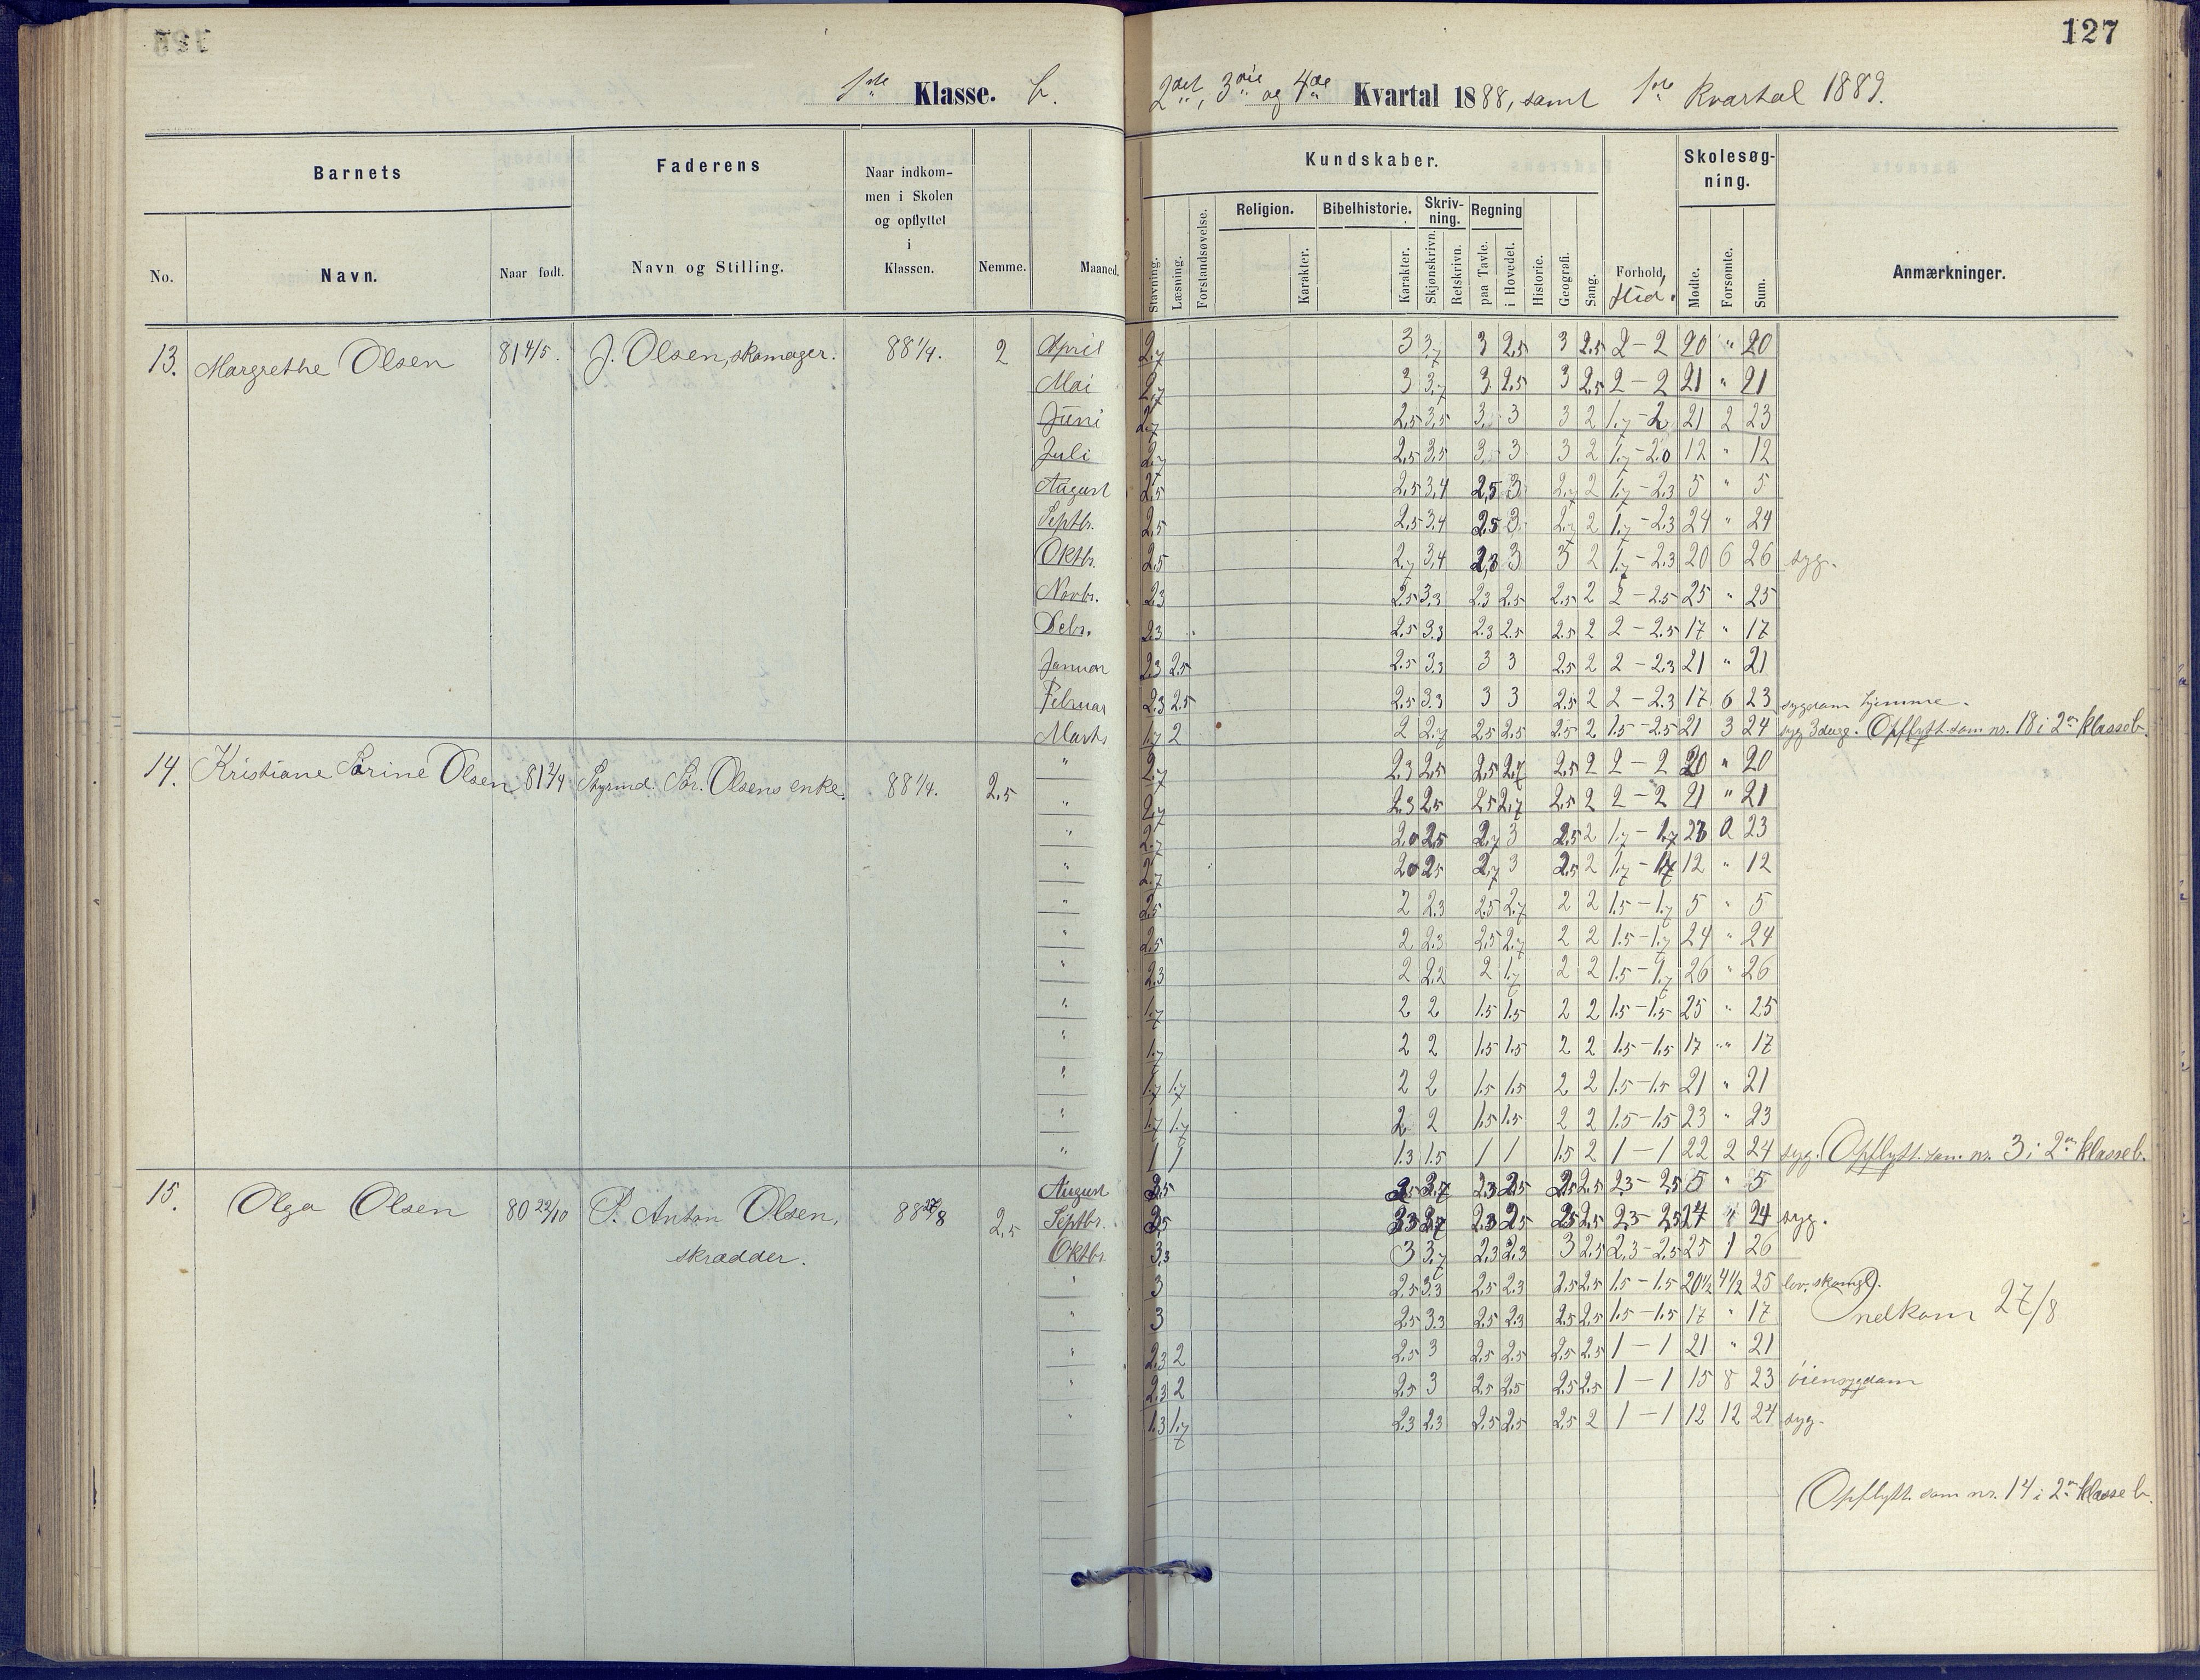 127
1ste Klasse. b. 2det, 3die og 4de Kvartal 1888, samt 1ste Kvartal 1889.
Barnets Faderens Naar indkommen i Skolen og opflyttet i Klassen. Nemme. Maaned. Kundskaber. Skolesøgning. Anmærkninger.
No. Navn. Naar født. Navn og Stilling.
Stavning. Læsning. Forstandsøvelse. Religion. Karakter. Bibelhistorie. Karakter. Skrivning. Skjønskrivn. Retskrivn. Regning paa Tavle. i Hovedet. Historie. Geografi. Sang. Forhold, flid. Mødte. Forsømte. Sum.
13. Margrethe Olsen 81 4/5. J. Olsen, skomager. 88 1/4. 2 April 2.7 3 3.7 3 2.5 3 2.5 2 - 2 20 " 20
Mai 2.7 3 3.7 3 2.5 3 2.5 2 - 2 21 " 21
Juni 2.7 2.5 3.5 3 3 3 2 1.7 - 2 21 2 23
Juli 2.7 2.5 3.5 3 3 3 2 1.7 - 2.0 12 " 12
August 2.5 2.5 3.4 2.5 3 2.7 2 1.7 - 2.3 5 " 5
Septbr. 2.5 2.5 3.4 2.5 3 2.7 2 1.7 - 2.3 24 " 24
Oktbr. 2.5 2.7 3.4 2.3 3 3 2 1.7 - 2.3 20 6 26 syg.
Novbr. 2.3 2.5 3.3 2.3 2.5 2.5 2 2 - 2.5 25 " 25
Debr. 2.3 2.5 3.3 2.3 2.5 2.5 2 2 - 2.5 17 " 17
Januar 2.3 2.5 2.5 3.3 3 3 2.5 2 2 - 2.3 21 " 21
Februar 2.3 2.5 2.5 3.3 3 3 2.5 2 2 - 2.3 17 6 23 sygdom hjemme.
Marts 1.7 2 2 2.7 2.5 2.5 2.5 2 1.5 - 2.5 21 3 24 syg 3 dage. Opflytt. som nr. 18 i 2en klasse b.
14. Kristiane Sørine Olsen 81 2/4 Styrmd. Sør. Olsens enke. 88 1/4. 2.5 " 2.7 2.3 2.5 2.5 2.7 2.5 2 2 - 2 20 " 20
" 2.7 2.3 2.5 2.5 2.7 2.5 2 2 - 2 21 " 21
" 2.7 2.0 2.5 2.7 3 2.5 2 1.7 - 1.7 23 0 23
" 2.7 2.0 2.5 2.7 3 2.5 2 1.7 - 1.7 12 " 12
" 2.5 2 2.3 2.5 2.7 2 2 1.5 - 1.7 5 " 5
" 2.5 2 2.3 2.5 2.7 2 2 1.5 - 1.7 24 " 24
" 2.3 2 2.2 2 1.7 2 2 1.5 - 1.7 26 " 26
" 1.7 2 2 1.5 1.5 2 2 1.5 - 1.5 25 " 25
" 1.7 2 2 1.5 1.5 2 2 1.5 - 1.5 17 " 17
" 1.7 1.7 2 2 1.5 1.5 2 2 1.5 - 1.5 21 " 21
" 1.7 1.7 2 2 1.5 1.5 2 2 1.5 - 1.5 23 " 23
" 1 1 1.3 1.5 1 1 1.5 2 1 - 1 22 2 24 syg. Opflytt. som nr. 3 i 2en klasse b.
15. Olga Olsen 80 22/10 P. Anton Olsen, 88 27/8 2.5 August 3.5 3.5 3.7 2.3 2.5 2.5 2.5 2.3 - 2.5 5 " 5
skrædder. Septbr. 3.5 3.3 3.7 2.3 2.5 2.5 2.5 2.3 - 2.5 24 " 24 syg.
Oktbr. 3.3 3 3.7 2.3 2.3 3 2.5 2.3 - 2.5 25 1 26
" 3 2.5 3.3 2.5 2.3 2.5 2.5 1.5 - 1.5 20 1/2 4 1/2 25 lov. skomgl.
" 3 2.5 3.3 2.5 2.3 2.5 2.5 1.5 - 1.5 17 " 17 Indkom 27/8
" 2.3 2 2.5 3 2.5 2.5 2.5 2.5 1 - 1 21 " 21
" 2.3 2 2.5 3 2.5 2.5 2.5 2.5 1 - 1 15 8 23 øiensygdom
" 1.3 1.7 2.3 2.3 2.5 2.5 2.5 2 1 - 1 12 12 24 syg.
Opflytt. som nr. 14 i 2en klasse b.